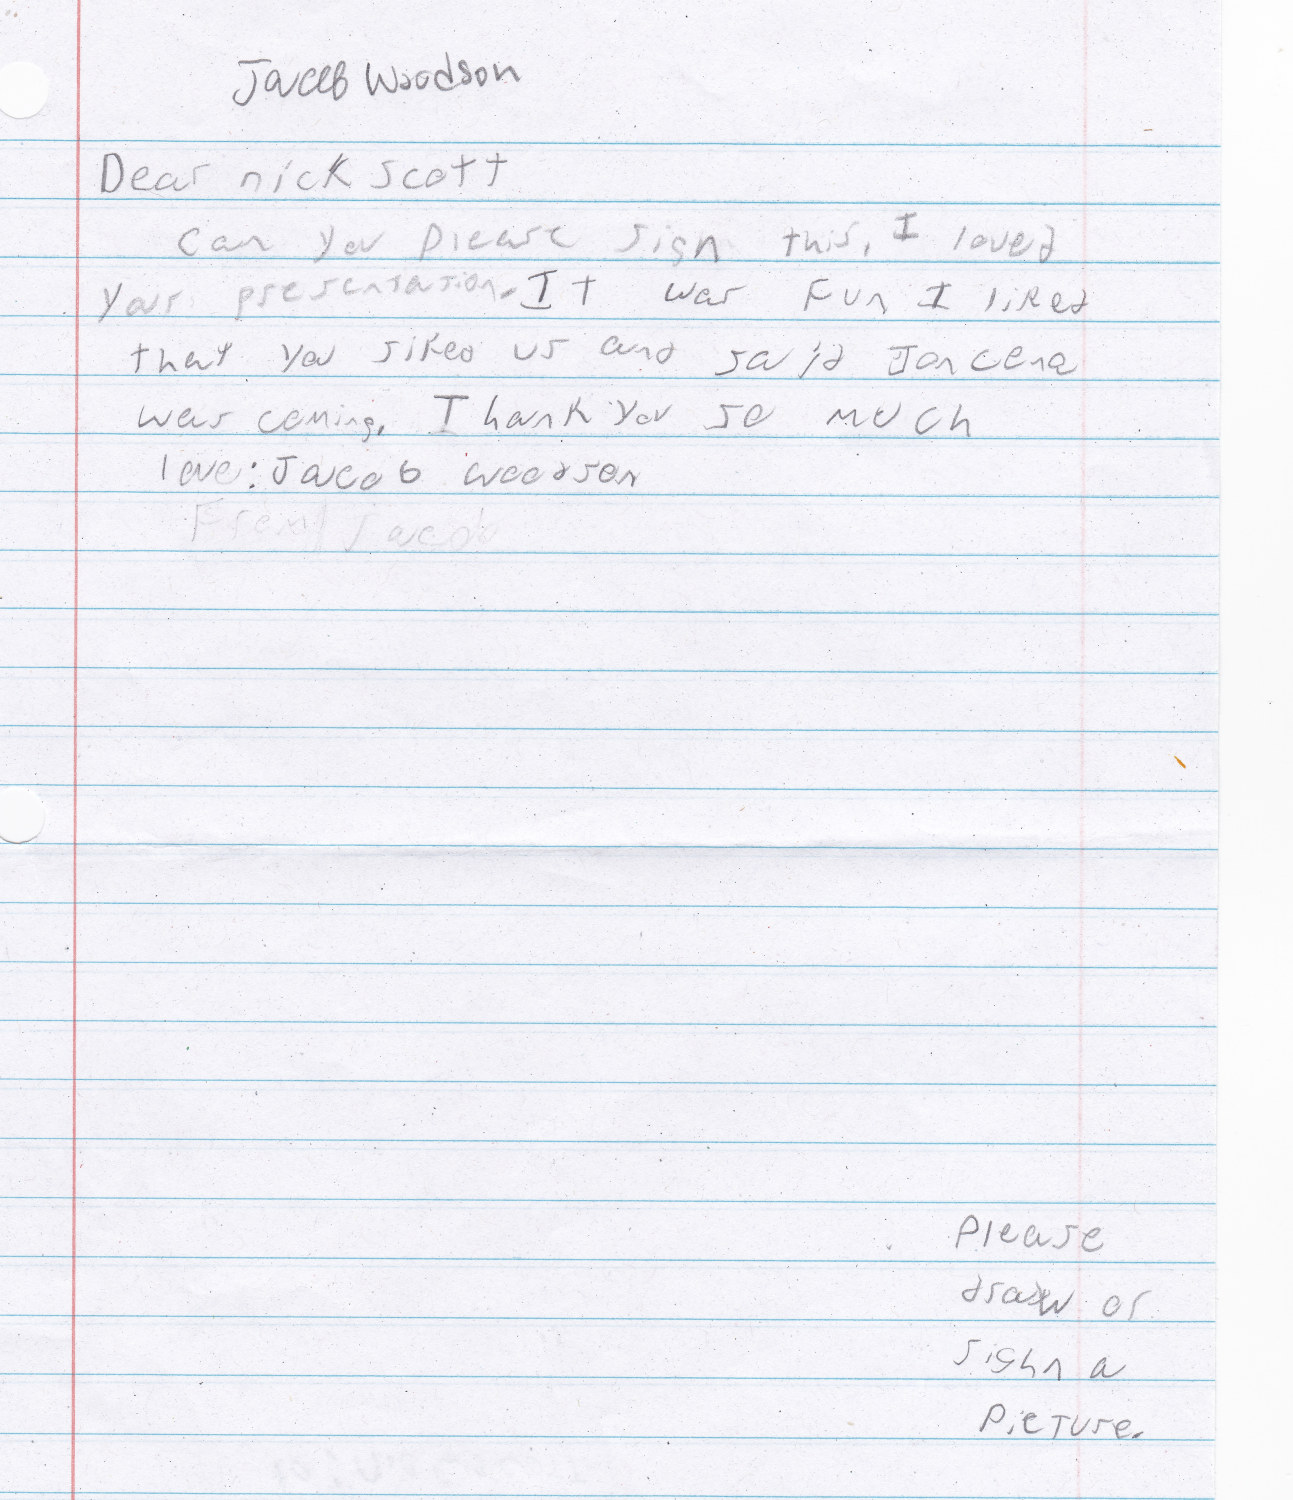 Jaceb Woodson
Dear nick scott
Can you please sign this, I loved
your presentation. It was Fun I liked
that you siked us and said Joncena
was coming. Thank you so much
love: Jacob woodson
From Jacob
please
draw or
sighn a
picture.